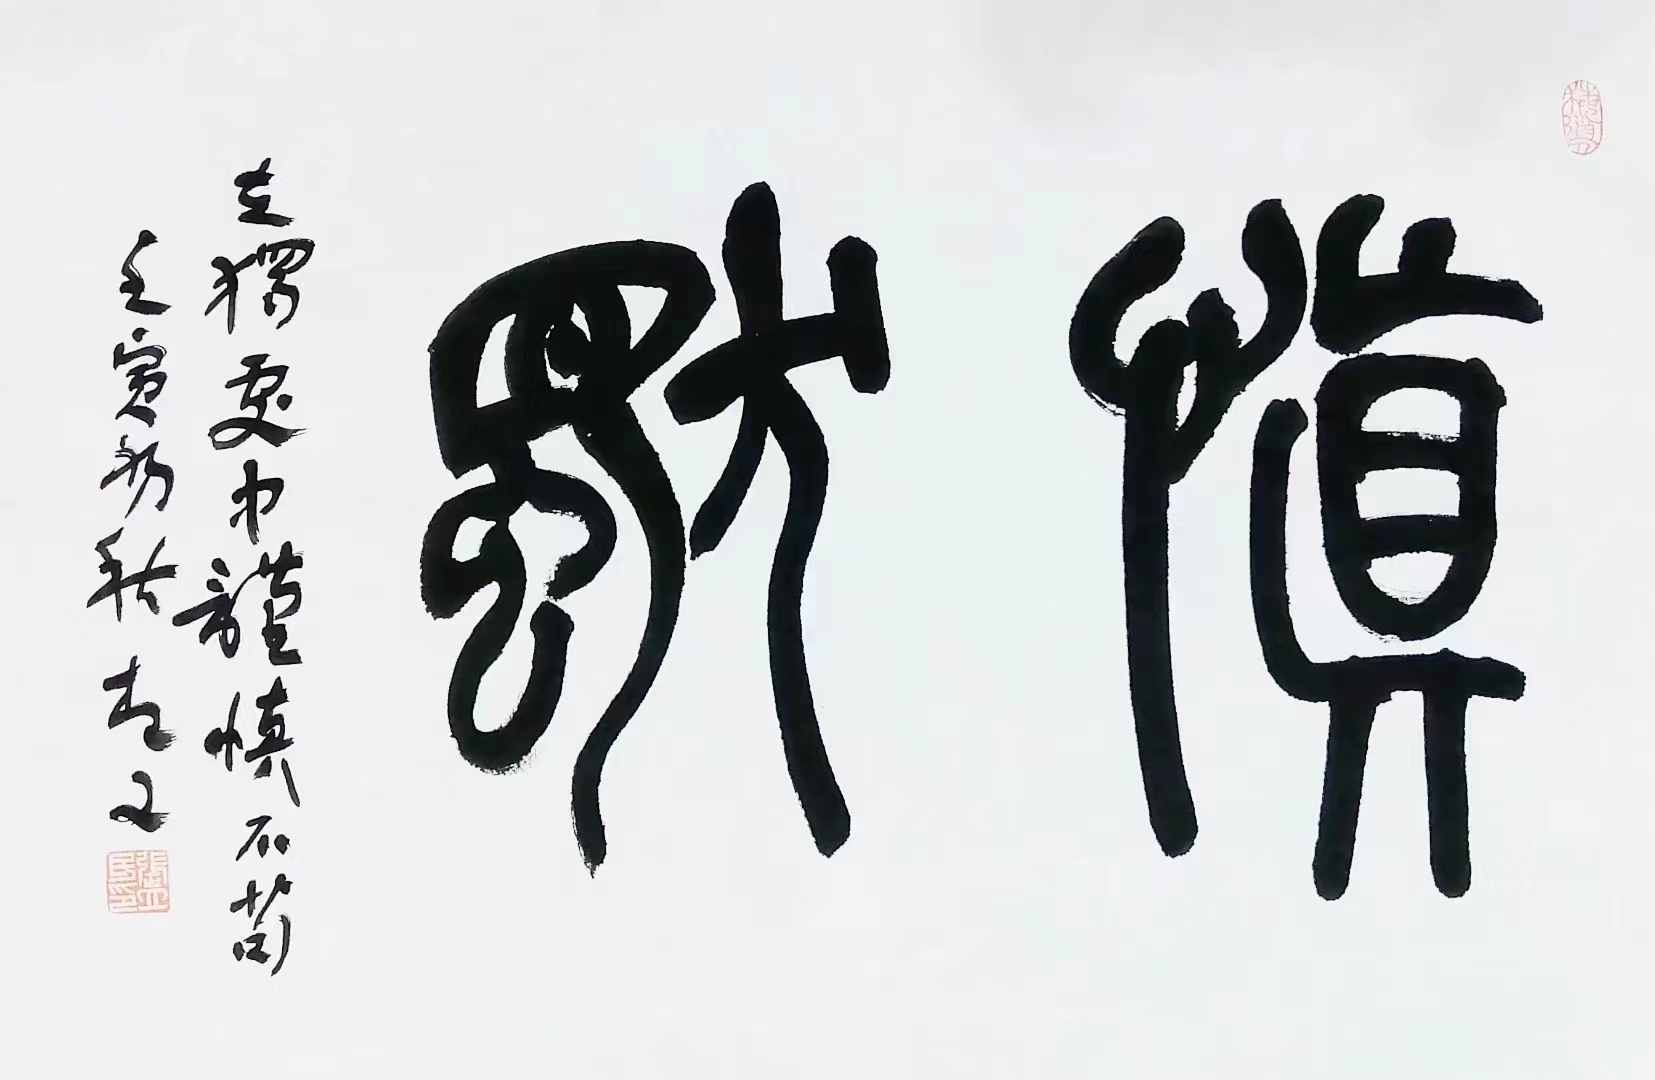 慎獨
在獨處中謹慎不苟
壬寅初秋志文